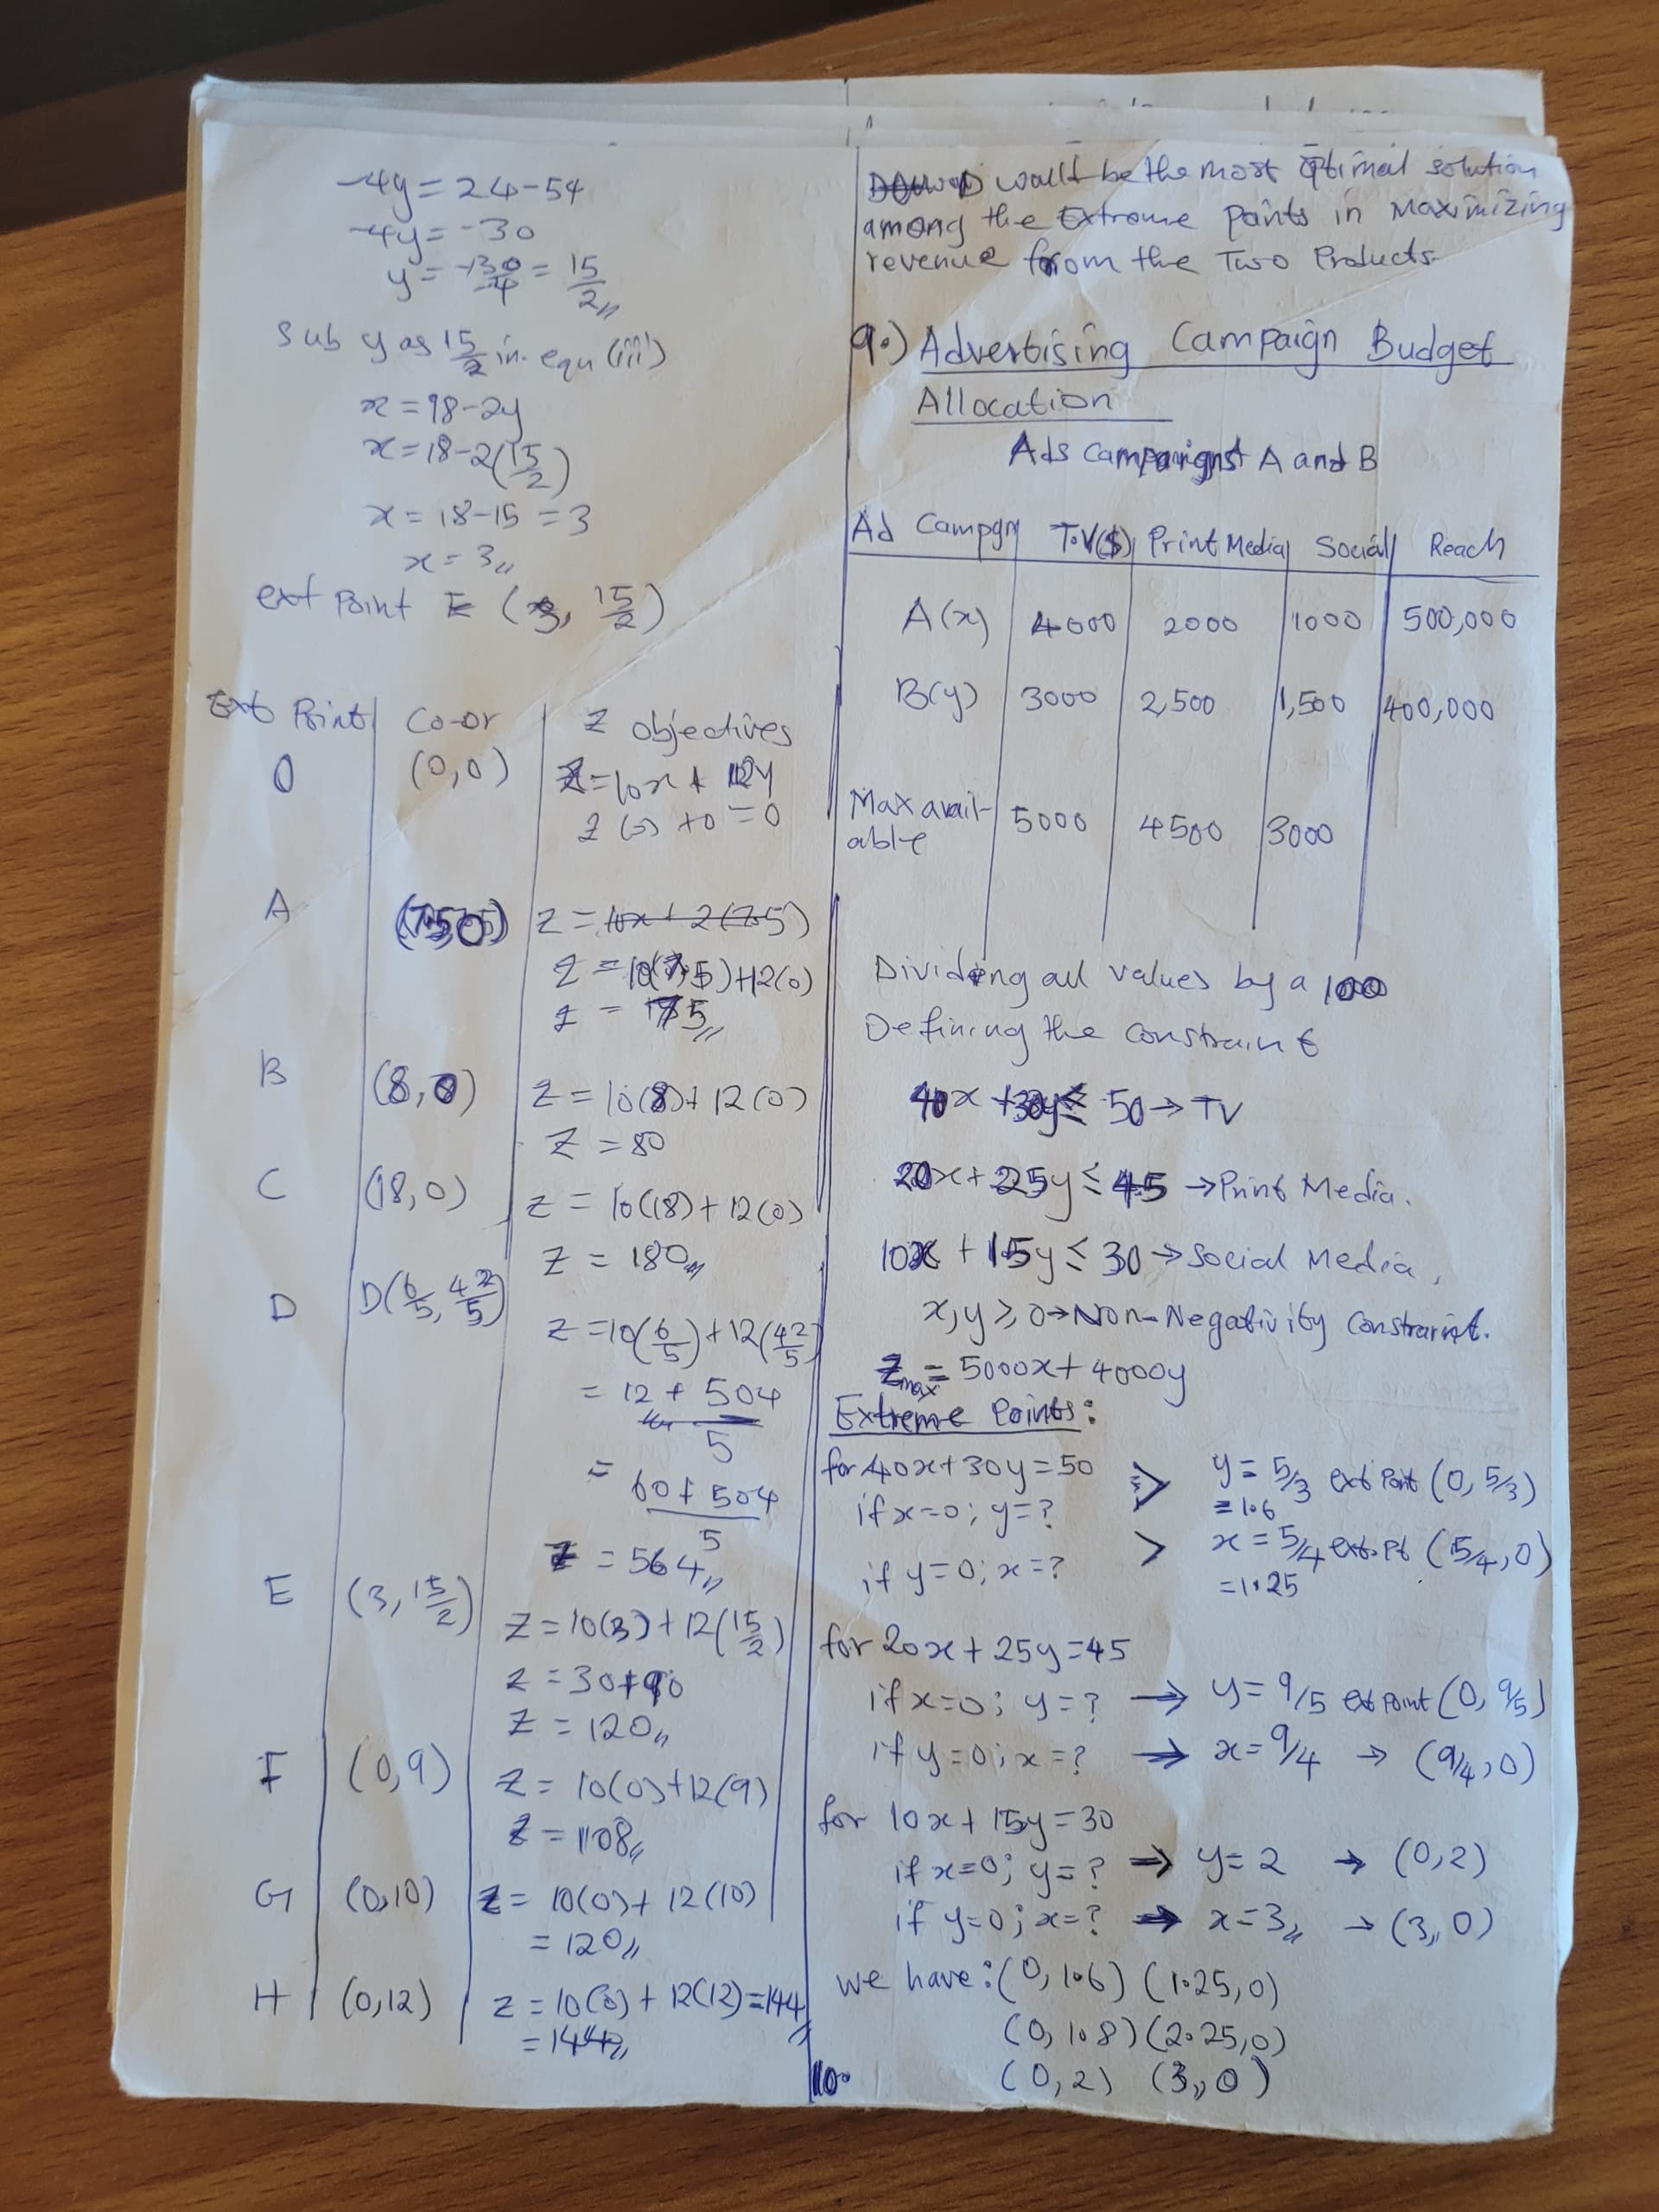 -4y = 24-54
-4y = -30
y = -30/-4 = 15/2
Sub y as 15/2 in equ (iii)
x = 18-2y
x = 18-2(15/2)
x = 18-15 = 3
x = 3
ext Point E (3, 15/2)
Ext Point | Co-or | Z objectives
O | (0,0) | Z = 10x + 12y
Z (0) + 0 = 0
A | (7.5,0) | Z = 10x + 2(7.5)
Z = 10(7.5)+12(0)
Z = 75
B | (8,0) | Z = 10(8)+12(0)
Z = 80
C | (18,0) | Z = 10(18)+12(0)
Z = 180
D | D(6/5, 42/5) | Z = 10(6/5)+12(42/5)
= 12 + 504/5
= 60+504/5
Z = 564/5
E | (3, 15/2) | Z = 10(3)+12(15/2)
Z = 30+90
Z = 120
F | (0,9) | Z = 10(0)+12(9)
Z = 108
G | (0,10) | Z = 10(0)+12(10)
= 120
H | (0,12) | Z = 10(0)+12(12)=144
= 144
D would be the most Optimal solution
among the Extreme Points in Maximizing
revenue from the Two Products.
9.) Advertising Campaign Budget
Allocation
Ads Campaigns A and B
Ad Campgn | T.V($) | Print Media | Social | Reach
A(x) | 4000 | 2000 | 1000 | 500,000
B(y) | 3000 | 2,500 | 1,500 | 400,000
Max avail-
able | 5000 | 4500 | 3000
Dividing all values by a 100
Defining the constraint
40x + 30y ≤ 50 → TV
20x + 25y ≤ 45 → Print Media.
10x + 15y ≤ 30 → Social Media,
x,y ≥ 0 → Non-Negativity Constraint.
Zmax = 5000x + 4000y
Extreme Points:
for 40x+30y=50
if x=0; y=? > y = 5/3 ext Point (0, 5/3)
= 1.6
if y=0; x=? > x = 5/4 ext.Pt (5/4, 0)
= 1.25
for 20x+25y=45
if x=0; y=? → y = 9/5 ext Point (0, 9/5)
if y=0; x=? → x = 9/4 → (9/4, 0)
for 10x+15y=30
if x=0; y=? → y = 2 → (0,2)
if y=0; x=? → x = 3 → (3, 0)
we have: (0, 1.6) (1.25, 0)
(0, 1.8) (2.25, 0)
(0, 2) (3, 0)
10.